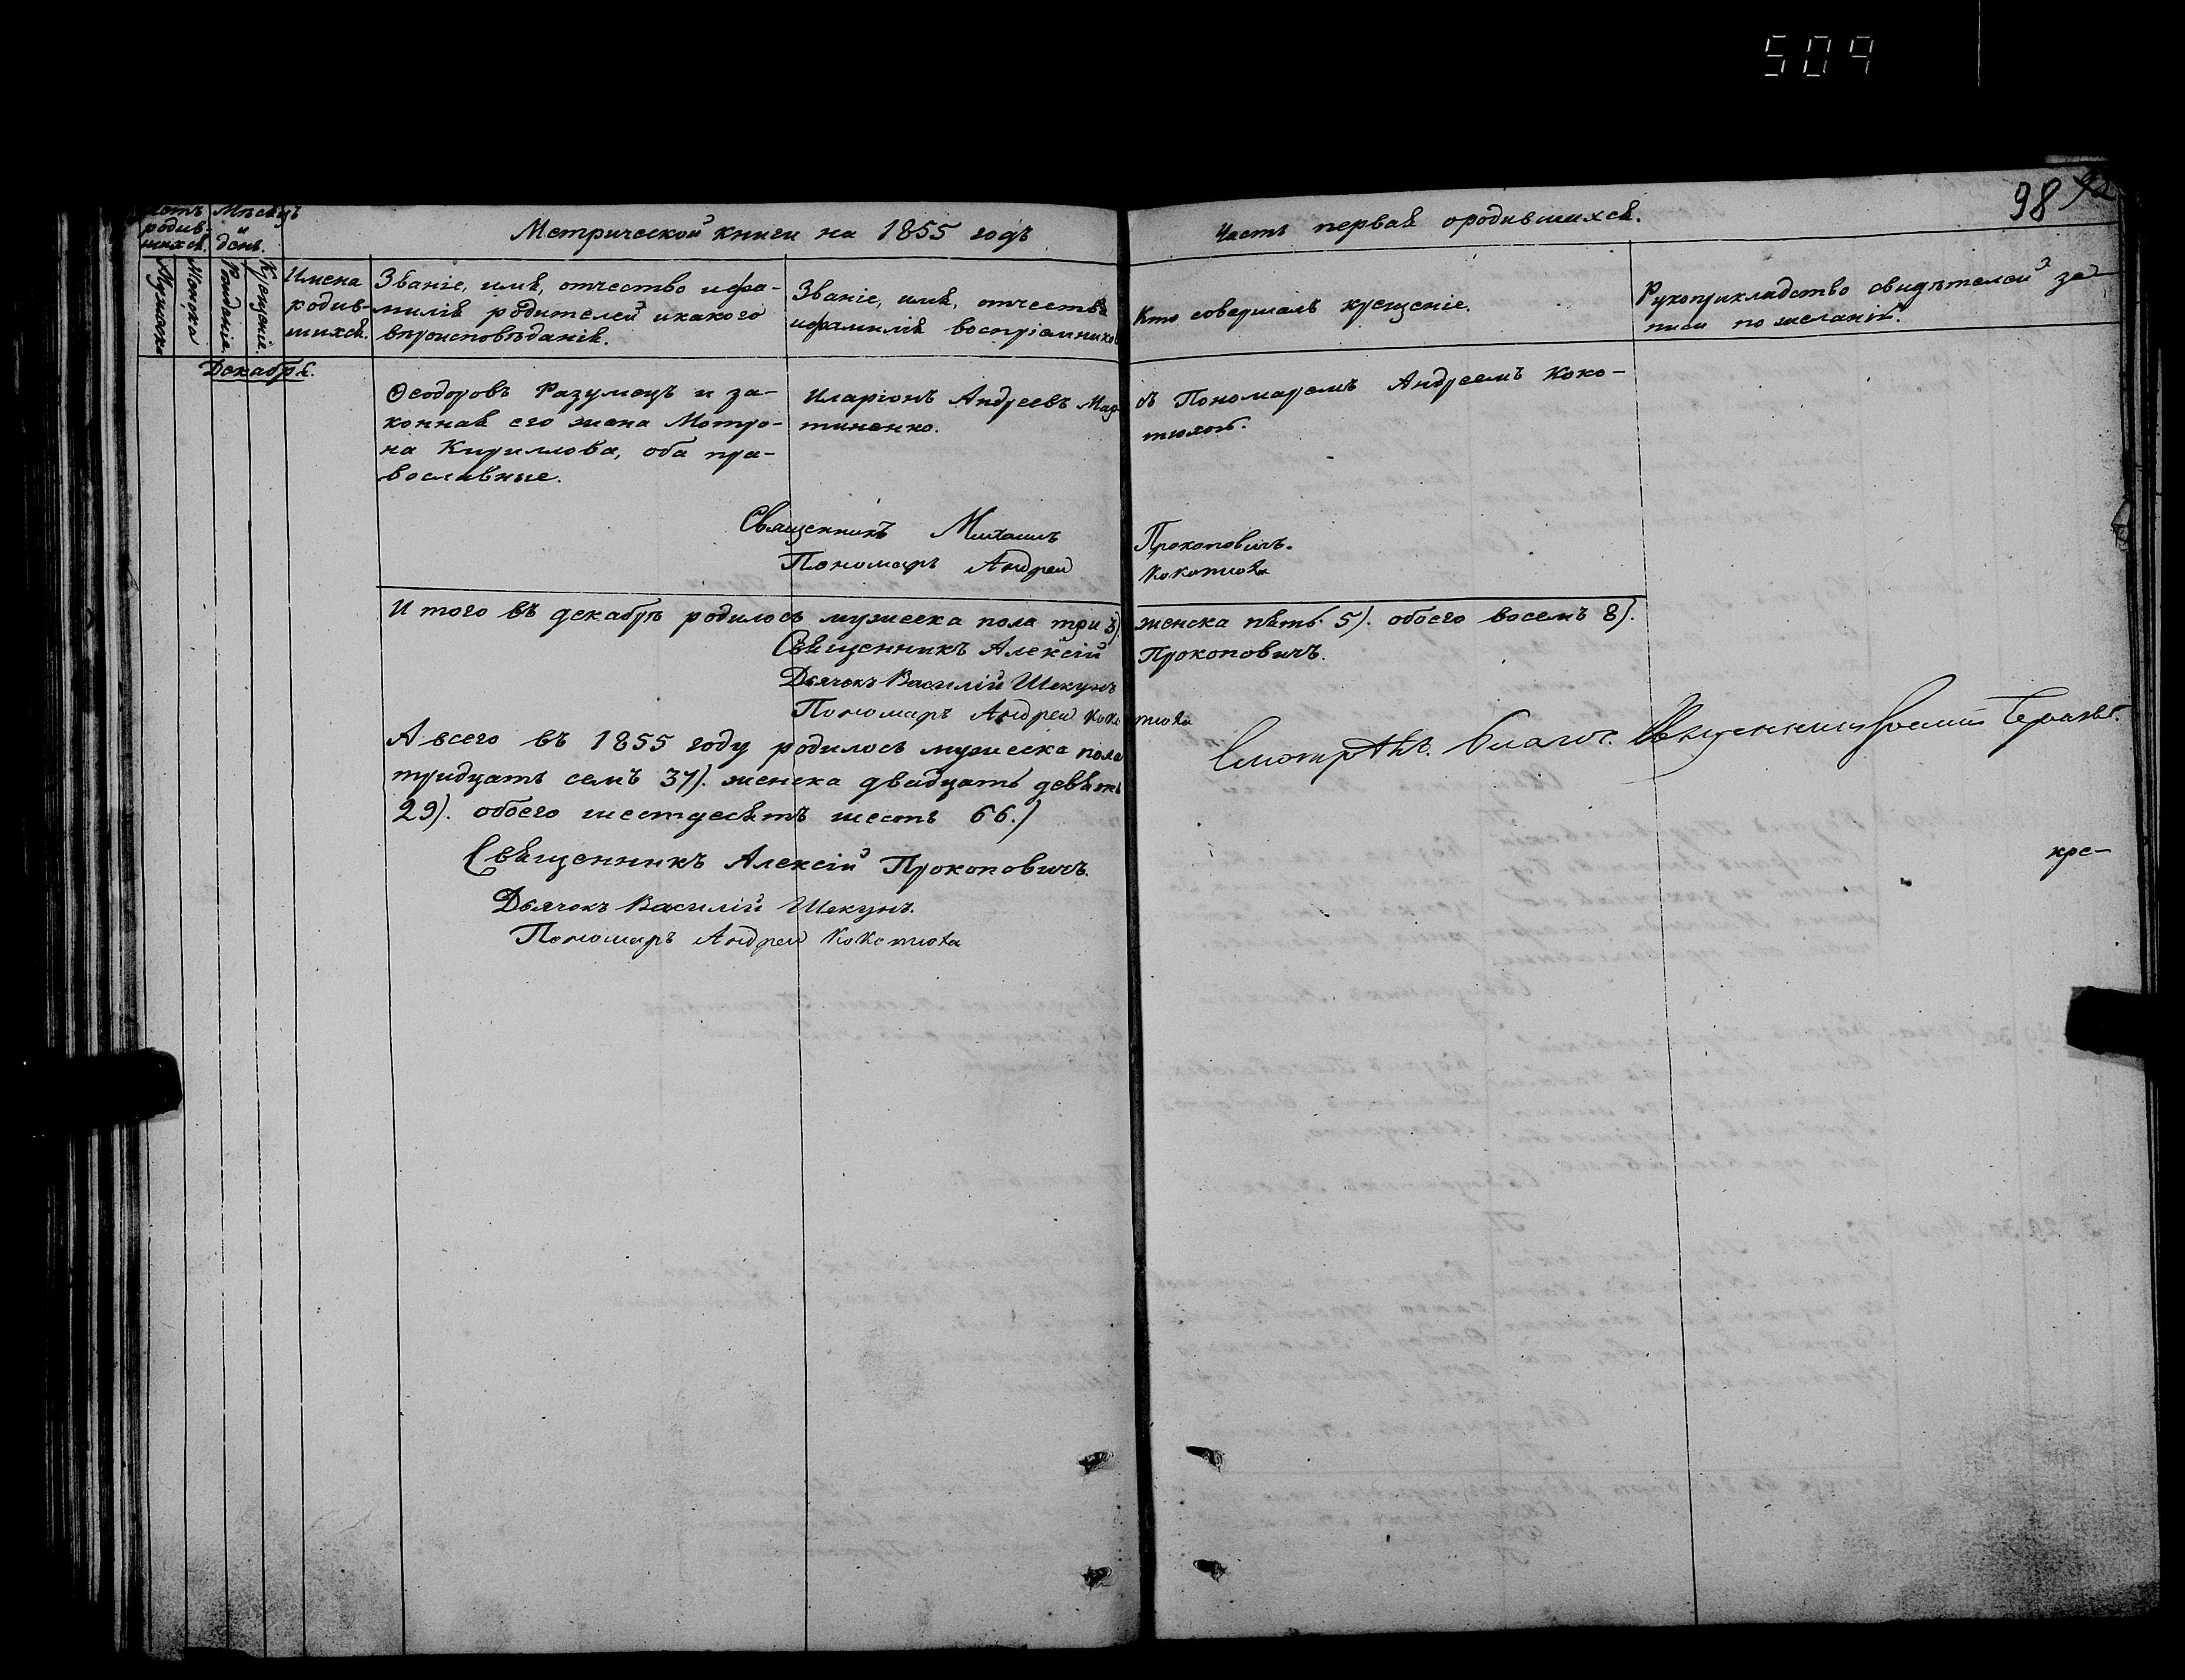 509
98
Метрической книги на 1855 годъ
Часть первая ородившихся.
родив-
шихся.
Мѣсяцъ
и
день.
Мужеска
Женска
Рожденіе.
Крещеніе.
Имена
родив-
шихся.
Званіе, имя, отчество ифа-
милія родителей икакого
вѣроисповѣданія.
Званіе, имя, отчества
ифамилія воспріемнико
Кто совершалъ крещеніе.
Рукоприкладство свидѣтелей за-
писи по желанію.
Декабря.
Ѳеодоровъ Разумецъ и за-
конная его жена Мотро-
на Кириллова, оба пра-
вославные.
Иларіонъ Андреевъ Мар-
тиненко.
съ Пономаремъ Андреемъ Коко-
тюхою.
Священникъ Михаилъ Прокоповичъ.
Пономаръ Андрей Кокотюха
Итого въ декабрѣ родилось мужеска пола три 3). женска пять 5). обоего восемъ 8).
Священникъ Алексій Прокоповичъ.
Дьячокъ Василій Шекунъ
Пономаръ Андрей Кокотюха
Авсего въ 1855 году родилось мужеска пола
тридцать семъ 37). женска двадцать девять
29). обоего шестдесятъ шесть 66.)
Священникъ Алексій Прокоповичъ.
Дьячокъ Василій Шекунъ.
Пономаръ Андрей Кокотюха
Смотрѣлъ. Благоч. Священникъ
кре-